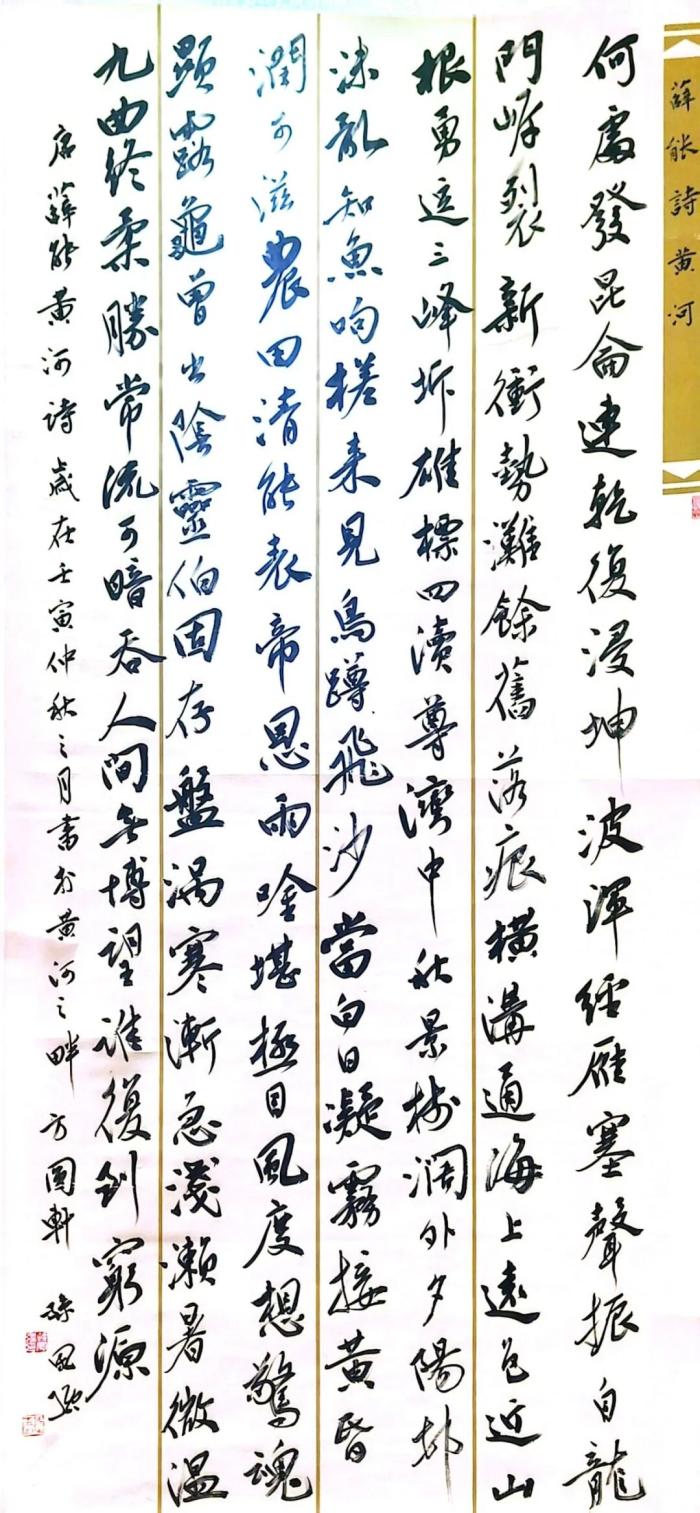 薛能詩黄河
何處發昆侖連乾復浸坤波渾經雁塞聲振自龍
門岸裂新衝勢灘餘舊落痕橫溝通海上遠色近山
根勇逗三峰坼雄標四瀆尊灣中秋景樹闊外夕陽村
沫亂知魚呴槎来見鳥蹲飛沙當白日凝霧接黄昏
潤可滋農田清能表帝恩雨吟堪極目風度想驚魂
顯露龜曾出陰靈伯固存盤渦寒漸急淺瀨暑微温
九曲終柔勝常流可暗吞人間無博望誰復到窮源
唐薛能黄河詩歲在壬寅仲秋之月書於黄河之畔方圓軒